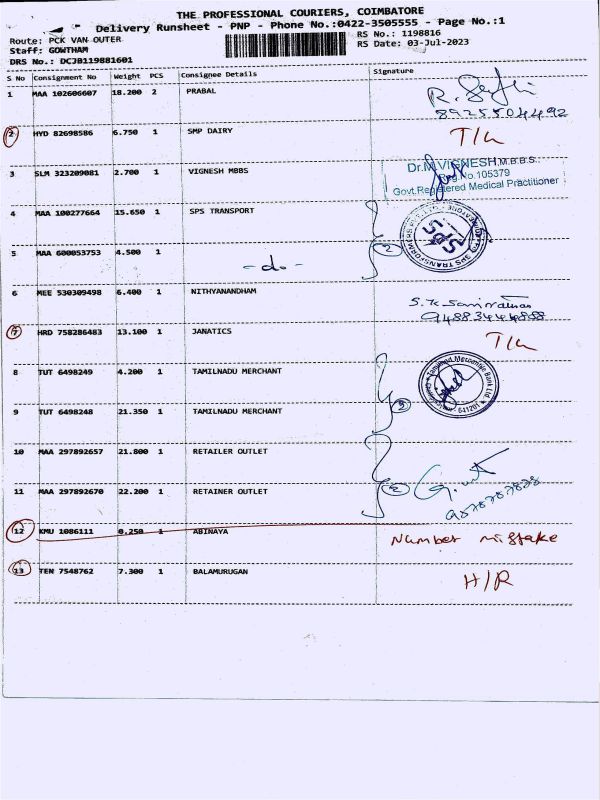 THE PROFESSIONAL COURIERS, COIMBATORE
Delivery Runsheet - PNP - Phone No.:0422-3505555 - Page No.:1
Route: PCK VAN OUTER
RS No.: 1198816
Staff: GOWTHAM
RS Date: 03-Jul-2023
DRS No.: DCJB119881601
S No Consignment No Weight PCS Consignee Details Signature
1 MAA 102606607 18.200 2 PRABAL
8925504492
2 HYD 82698586 6.750 1 SMP DAIRY T/L
3 SLM 323209081 2.700 1 VIGNESH MBBS
Dr.M.VIGNESH,M.B.B.S.,
Reg.No.105379
Govt.Registered Medical Practitioner
4 MAA 100277664 15.650 1 SPS TRANSPORT
2
5 MAA 600053753 4.500 1
-do-
6 MEE 530309498 6.400 1 NITHYANANDHAM
7 HRD 758286483 13.100 1 JANATICS T/L
8 TUT 6498249 4.200 1 TAMILNADU MERCHANT
2
9 TUT 6498248 21.350 1 TAMILNADU MERCHANT
10 MAA 297892657 21.800 1 RETAILER OUTLET
2
11 MAA 297892670 22.200 1 RETAINER OUTLET
12 KMU 1086111 0.250 1 ABINAYA Number mistake
13 TEN 7548762 7.300 1 BALAMURUGAN H/R